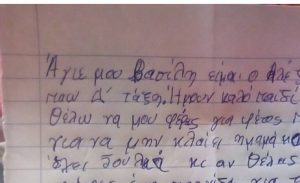 Άγιε μου Βασίλη είμαι ο Αλέξ
που Δ' τάξη. Ήμουν καλό παιδί
Θέλω να μου φέρεις για
για να μην κλαίει η μαμά
έχει δουλειά κι αν θέλεις
για